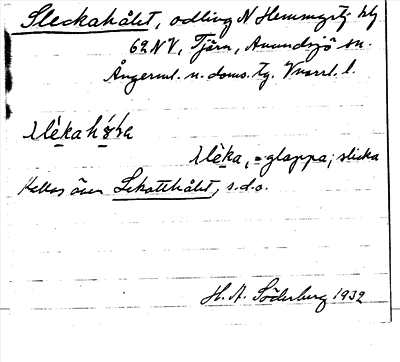 Sleckahålet, odling N Hemmyrtj
62 NV, Tjärn, Anundsjö sn.
Ångerml. n. doms. tg. Vnorrl. l.
slèka,=glappa; slicka
Kallas även Skatthålet, s.d.o.
H. A. Söderberg 1932